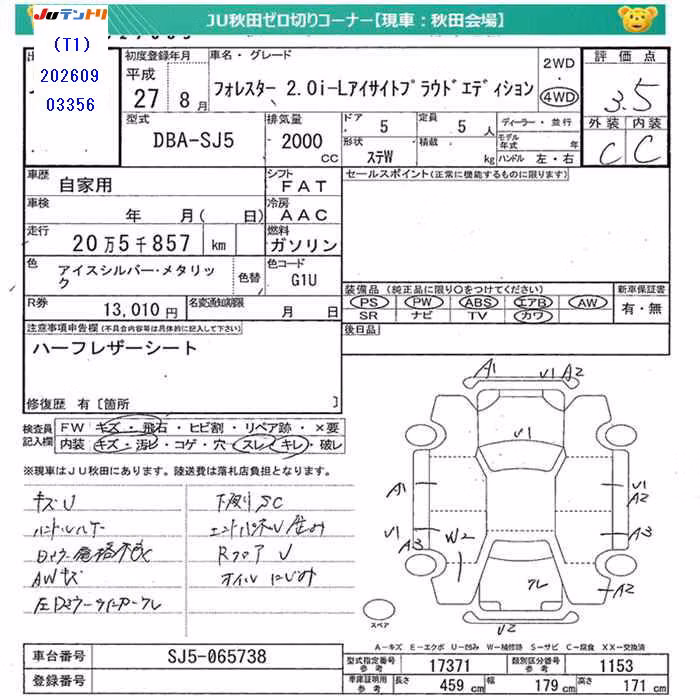 JUテントリ
JU秋田ゼロ切りコーナー【現車：秋田会場】
(T1)
202609
03356
初度登録年月
平成
27 8月
車名・グレード
フォレスター 2.0i-Lアイサイトプラウドエディション
2WD
・
4WD
評価点
3.5
外装 内装
C C
型式
DBA-SJ5
排気量
2000
cc
ドア
5
定員
5 人
形状
ステW
積載
kg
ディーラー・並行
モデル年式 年
ハンドル 左・右
車歴
自家用
シフト
FAT
セールスポイント(正常に機能するものに限ります)
車検
年 月( 日)
冷房
AAC
走行
20万5千857 km
燃料
ガソリン
色
アイスシルバー・メタリック
色替
色コード
G1U
R券
13,010円
名変通知期限
月 日
装備品 (純正品に限り○をつけてください)
PS PW ABS エアB AW
SR ナビ TV カワ
新車保証書
有・無
後日品
注意事項申告欄(不具合内容等は具体的に記入して下さい)
ハーフレザーシート
修復歴 有[箇所 ]
検査員
記入欄
FW キズ・飛石・ヒビ割・リペア跡・×要
内装 キズ・汚レ・コゲ・穴・スレ・キレ・破レ
※現車はJU秋田にあります。陸送費は落札店負担となります。
キズU
下廻りSC
AWキズ
RフロアU
オイルにじみ
A1
U1 A2
U1
A1
U1
A2
U1
A3
W2
A3
A2
クレ
U2
スペア
A-キズ E-エクボ U-凹み W-補修跡 S-サビ C-腐食 XX-交換済
車台番号
SJ5-065738
登録番号
型式指定番号
参考
17371
類別区分番号
参考
1153
車庫証明用
参考
長さ 459 cm
幅 179 cm
高さ 171 cm